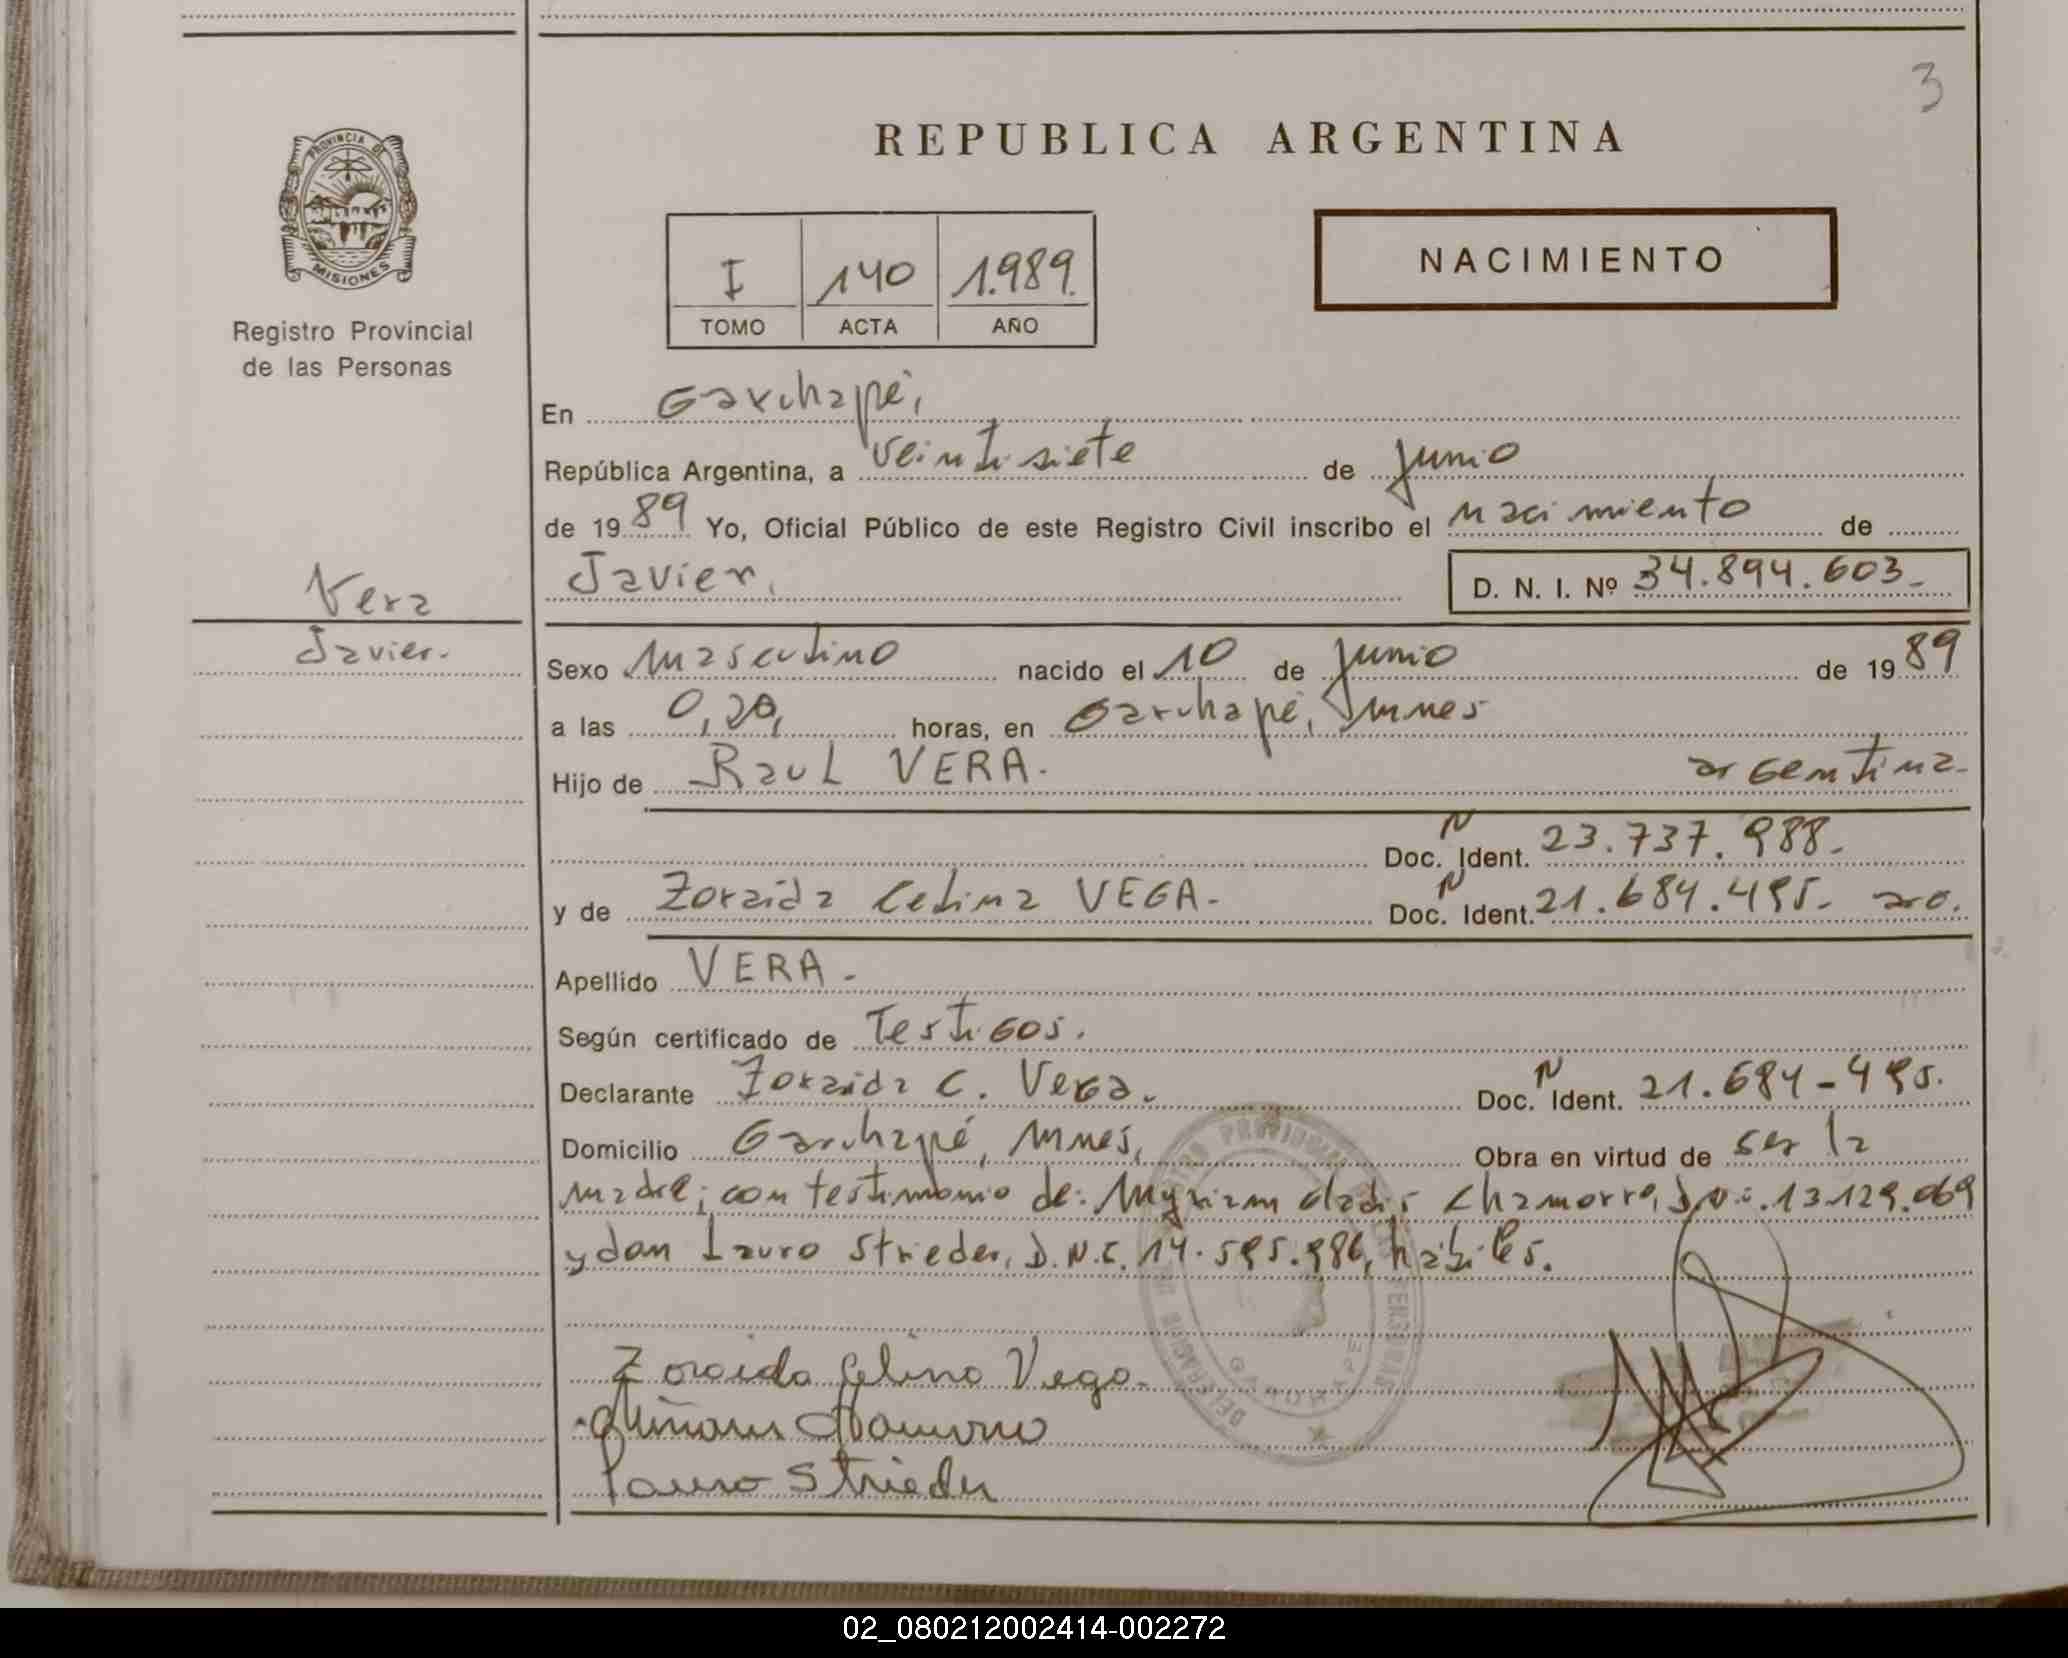 3
PROVINCIA DE
MISIONES
Registro Provincial
de las Personas
Vera
Javier.
REPUBLICA ARGENTINA
I 140 1.989.
TOMO ACTA AÑO
NACIMIENTO
En Garuhapé,
República Argentina, a veintisiete de junio
de 1989 Yo, Oficial Público de este Registro Civil inscribo el nacimiento de
Javier, D. N. I. Nº 34.894.603-
Sexo masculino nacido el 10 de junio de 1989
a las 0,20, horas, en Garuhapé, Mnes
Hijo de Raul VERA. argentina-
Doc. N Ident. 23.737.988-
y de Zoraida Celina VEGA- Doc. N Ident. 21.684.495- arg.
Apellido VERA-
Según certificado de Testigos.
Declarante Zoraida C. Vega. Doc. N Ident. 21.684-495.
Domicilio Garuhapé, Mnes, Obra en virtud de ser la
madre; con testimonio de: Myriam Gladis Chamorro, D.N.i. 13.129.069
y don Lauro Strieder, D.N.I. 14.595.986, hábiles.
Zoraida Celina Vega.
Lauro Strieder
GARUHAPE
02_080212002414-002272